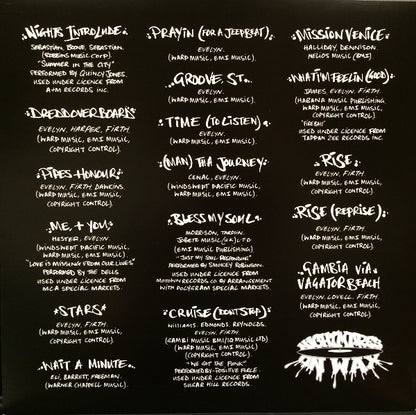 NIGHTS INTROLUDE
SEBASTIAN, BOONE, SEBASTIAN.
(ROBBINS MUSIC CORP)
"SUMMER IN THE CITY"
PERFORMED BY QUINCY JONES.
USED UNDER LICENCE FROM
A+M RECORDS INC.
DREDDOVERBOARD
EVELYN, HARPER, FIRTH.
(WARP MUSIC, EMI MUSIC,
COPYRIGHT CONTROL).
PIPES HONOUR
EVELYN, FIRTH, DAWKINS.
(WARP MUSIC, EMI MUSIC,
COPYRIGHT CONTROL).
ME + YOU
HESTER, EVELYN
(WINDSWEPT PACIFIC MUSIC,
WARP MUSIC, EMI MUSIC).
"LOVE IS MISSING FROM OUR LIVES"
PERFORMED BY THE DELLS.
USED UNDER LICENCE FROM
MCA SPECIAL MARKETS.
STARS
EVELYN, FIRTH.
(WARP MUSIC, EMI MUSIC,
COPYRIGHT CONTROL).
WAIT A MINUTE
ELI, BARRETT, FREEMAN.
(WARNER CHAPPELL MUSIC).
PRAYIN (FOR A JEEPBEAT)
EVELYN.
(WARP MUSIC, EMI MUSIC).
GROOVE ST.
EVELYN.
(WARP MUSIC, EMI MUSIC).
TIME (TO LISTEN)
EVELYN.
(WARP MUSIC, EMI MUSIC).
(MAN) THA JOURNEY
CENAC, EVELYN.
(WINDSWEPT PACIFIC MUSIC,
WARP MUSIC, EMI MUSIC).
BLESS MY SOUL
MORRISON, TARPLIN.
JOBETE MUSIC (UK) LTD
(EMI MUSIC PUBLISHING)
"JUST MY SOUL RESPONDING"
PERFORMED BY SMOKEY ROBINSON.
USED UNDER LICENCE FROM
MOTOWN RECORDS CO BY ARRANGEMENT
WITH POLYGRAM SPECIAL MARKETS.
CRUISE (DONT STOP)
WILLIAMS, EDMONDS, REYNOLDS,
EVELYN, FIRTH
(CAMBI MUSIC BMI/10 MUSIC LTD)
(WARP MUSIC, EMI MUSIC,
(COPYRIGHT CONTROL).
"WE GOT THE FUNK"
PERFORMED BY POSITIVE FORCE.
USED UNDER LICENCE FROM
SUGAR HILL RECORDS.
MISSION VENICE
HALLIDAY, DENNISON.
HELIOS MUSIC (BMI)
WHAT I'M FEELIN (GOOD)
JAMES, EVELYN, FIRTH.
(MARANA MUSIC PUBLISHING,
WARP MUSIC, EMI MUSIC,
COPYRIGHT CONTROL)
USED UNDER LICENCE FROM
TAPPAN ZEE RECORDS INC.
RISE
EVELYN, FIRTH.
(WARP MUSIC, EMI MUSIC,
COPYRIGHT CONTROL).
RISE (REPRISE)
EVELYN, FIRTH.
(WARP MUSIC, EMI MUSIC,
COPYRIGHT CONTROL).
GAMBIA VIA
VAGATOR BEACH
EVELYN, LOVELL, FIRTH.
(WARP MUSIC, EMI MUSIC,
COPYRIGHT CONTROL).
NIGHTMARES
ON WAX